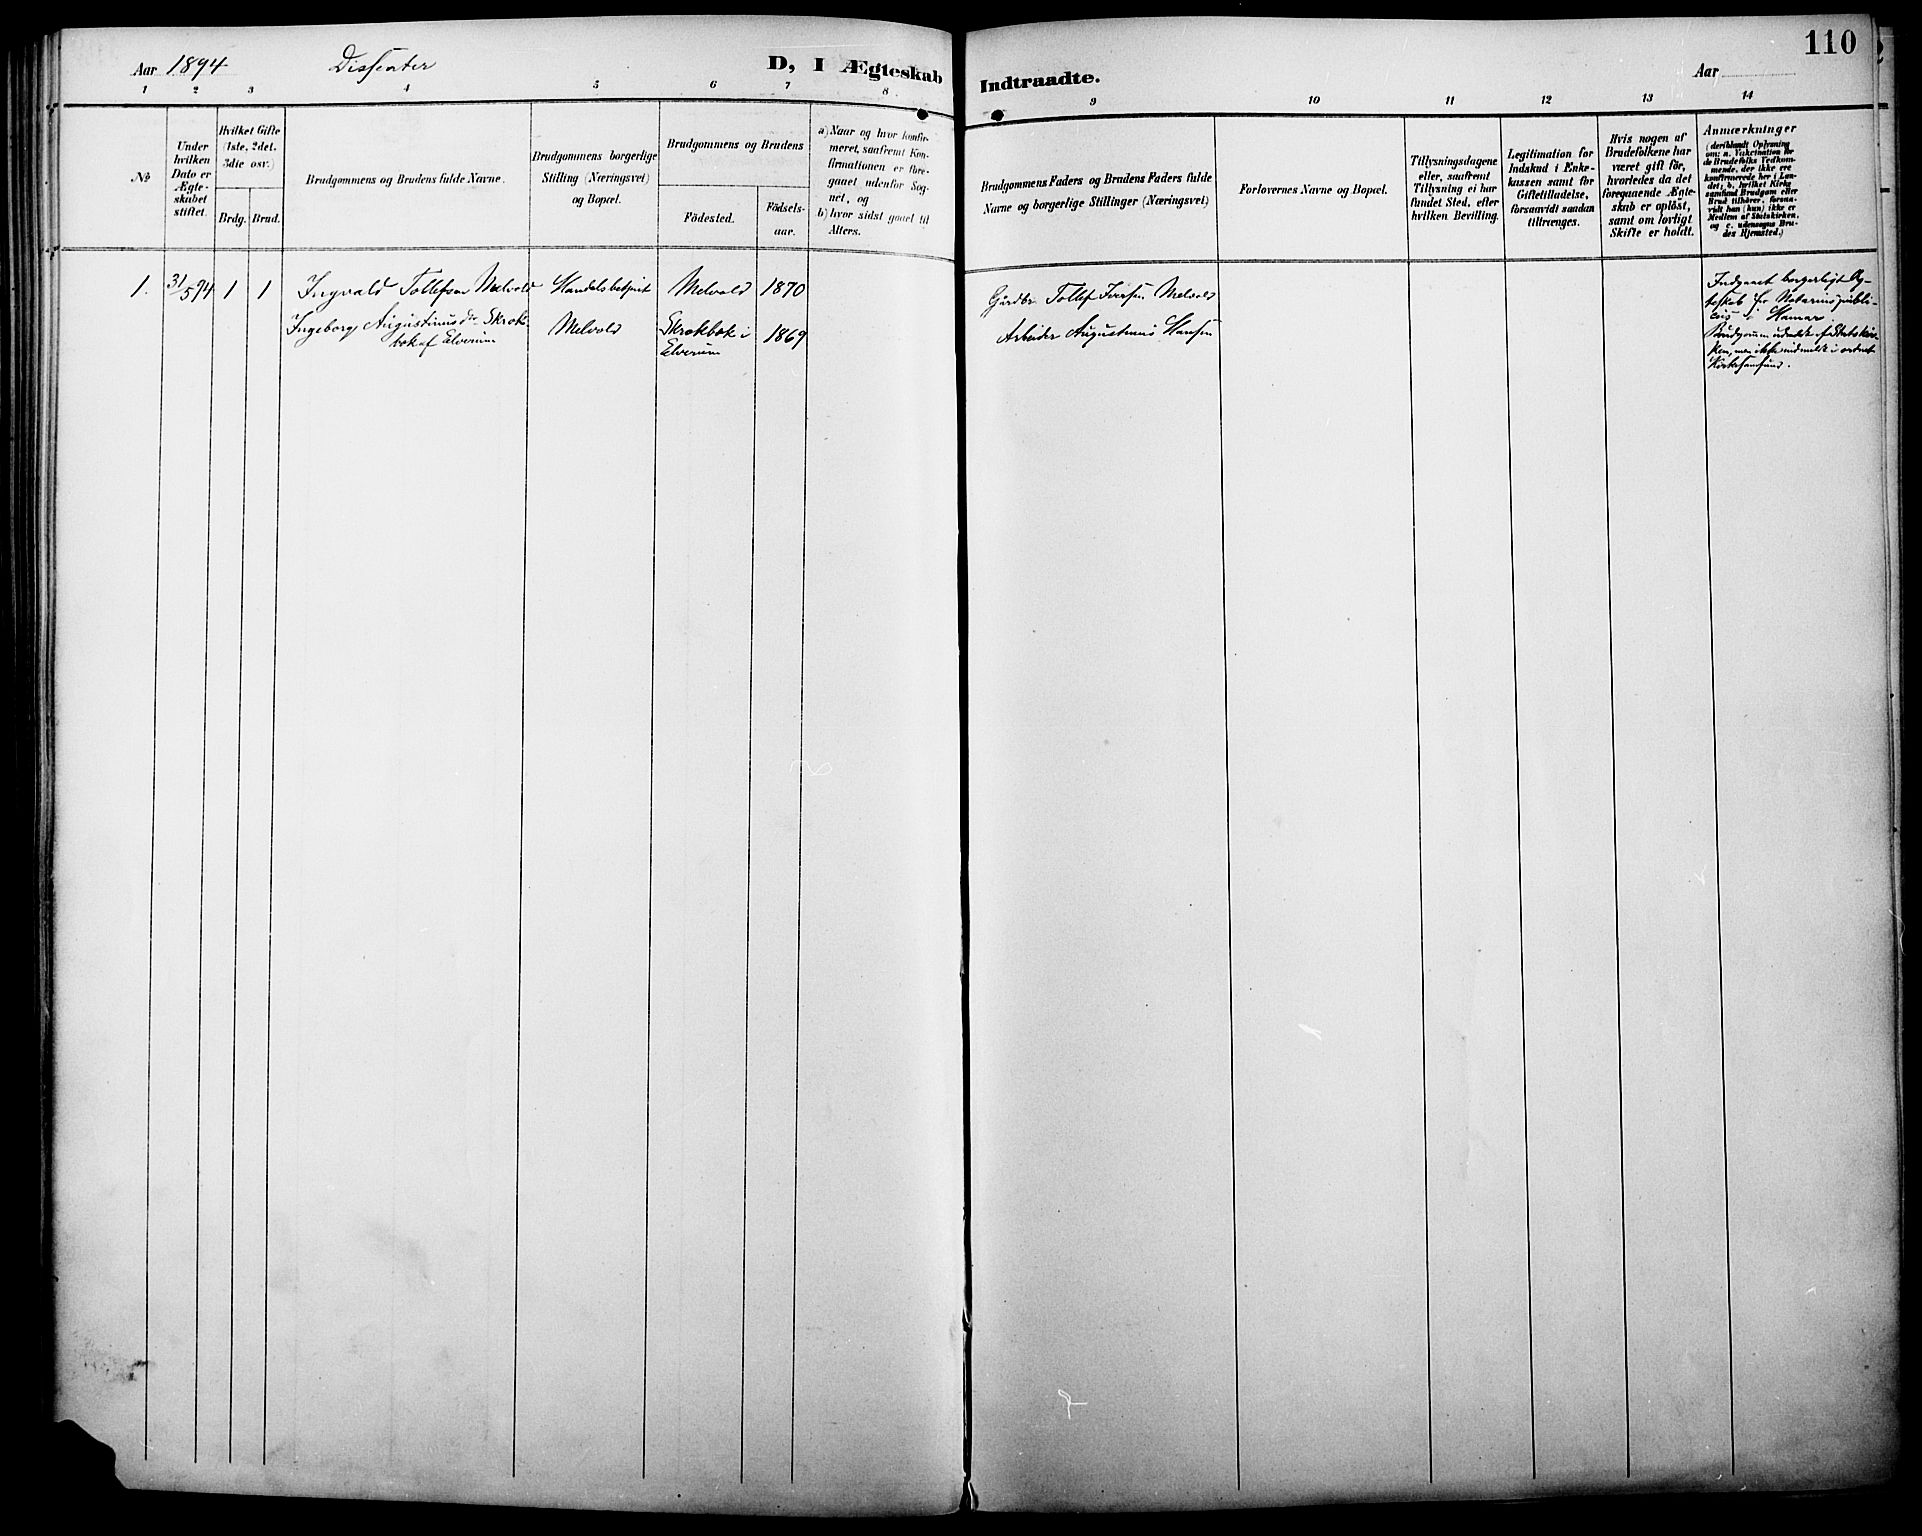 Aar 1894
Dissenter
D, I Ægteskab
Indtraadte.
Aar
110
1
2
3
4
5
6
7
8
9
10
11
12
13
14
No
Under
hvilken
Dato er
Ægte-
skabet
stiftet.
Hvilket Gifte
(1ste, 2det.
3die osv.)
Brdg.
Brud.
Brudgommens og Brudens fulde Navne.
Brudgommens borgerlige
Stilling (Næringsvei)
og Bopæl.
Brudgommens og Brudens
Födested.
Födsels-
aar.
a) Naar og hvor konfir-
meret, saafremt Kon-
firmationen er fore-
gaaet udenfor Sog-
net, og
b) hvor sidst gaaet til
Alters.
Brudgommens Faders og Brudens Faders fulde
Navne og borgerlige Stillinger (Næringsvei)
Forlovernes Navne og Bopæl.
Tillysningsdagene
eller, saafremt
Tillysning ei har
fundet Sted, efter
hvilken Bevilling.
Legitimation for
Indskud i Enke-
kassen samt for
Giftetilladelse,
forsaavidt saadan
tiltrænges.
Hvis nogen af
Brudefolkene har
været gift för,
hvorledes da det
foregaaende Ægte-
skab er oplöst,
samt om lovligt
Skifte er holdt.
Anmærkninger
(deriblandt Oplysning
om: a. Vakcination for
de Brudefolks Vedkom-
mende, der ikke ere
konfirmerede her i Lan-
det; b. hvilket Kirke
samfund Brudgom eller
Brud tilhører, forsaa-
vidt han (hun) ikke er
Medlem af Statskirken,
og c. udensogns Bru-
des Hjemsted.)
1.
31/5 94
1
1
Ingvald Tollefsen Melvold
Handelsbetjent
Melvold
1870
Gårdbr. Tollef Iversen Melvold
Ingeborg Augustinusdr Skrok-
bæk af Elverum
Melvold
Skrokbæk i
Elverum
1869
Arbeider Augustinus Hansen
Indgaaet borgerligt Æg-
teskab for Notarius publi-
cus i Hamar.
Brudgommen udmeldt af Statskir-
ken, men ikke indmeldt i ordnet
Kirkesamfund.